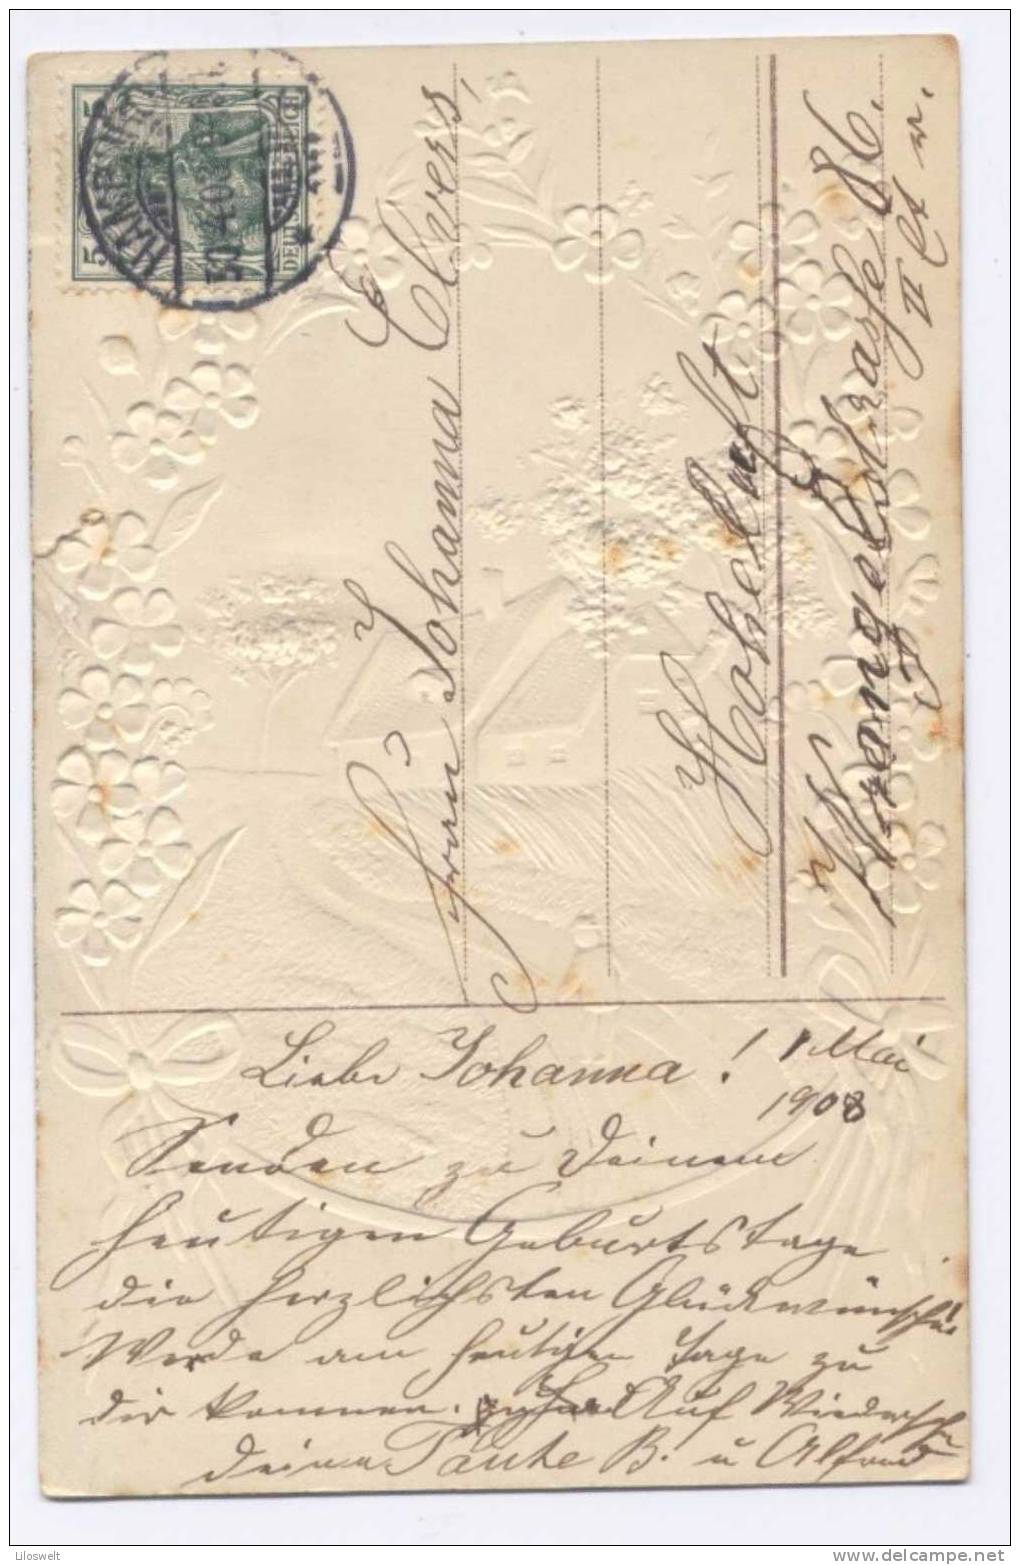 HAMBURG
30.4.08
5
DEUTSCHES REICH
Frau Johanna Elvers
Hoheluft
Wrangelstrasse 86.
II Et
Liebe Johanna!
1 Mai
1908
Senden zu Deinem
heutigen Geburtstage
die herzlichsten Glückwünsche
Werde am heutigen Tage zu
dir kommen. Auf Wiedersehn
deine Tante B. u Alfred
Liloswelt
www.delcampe.net